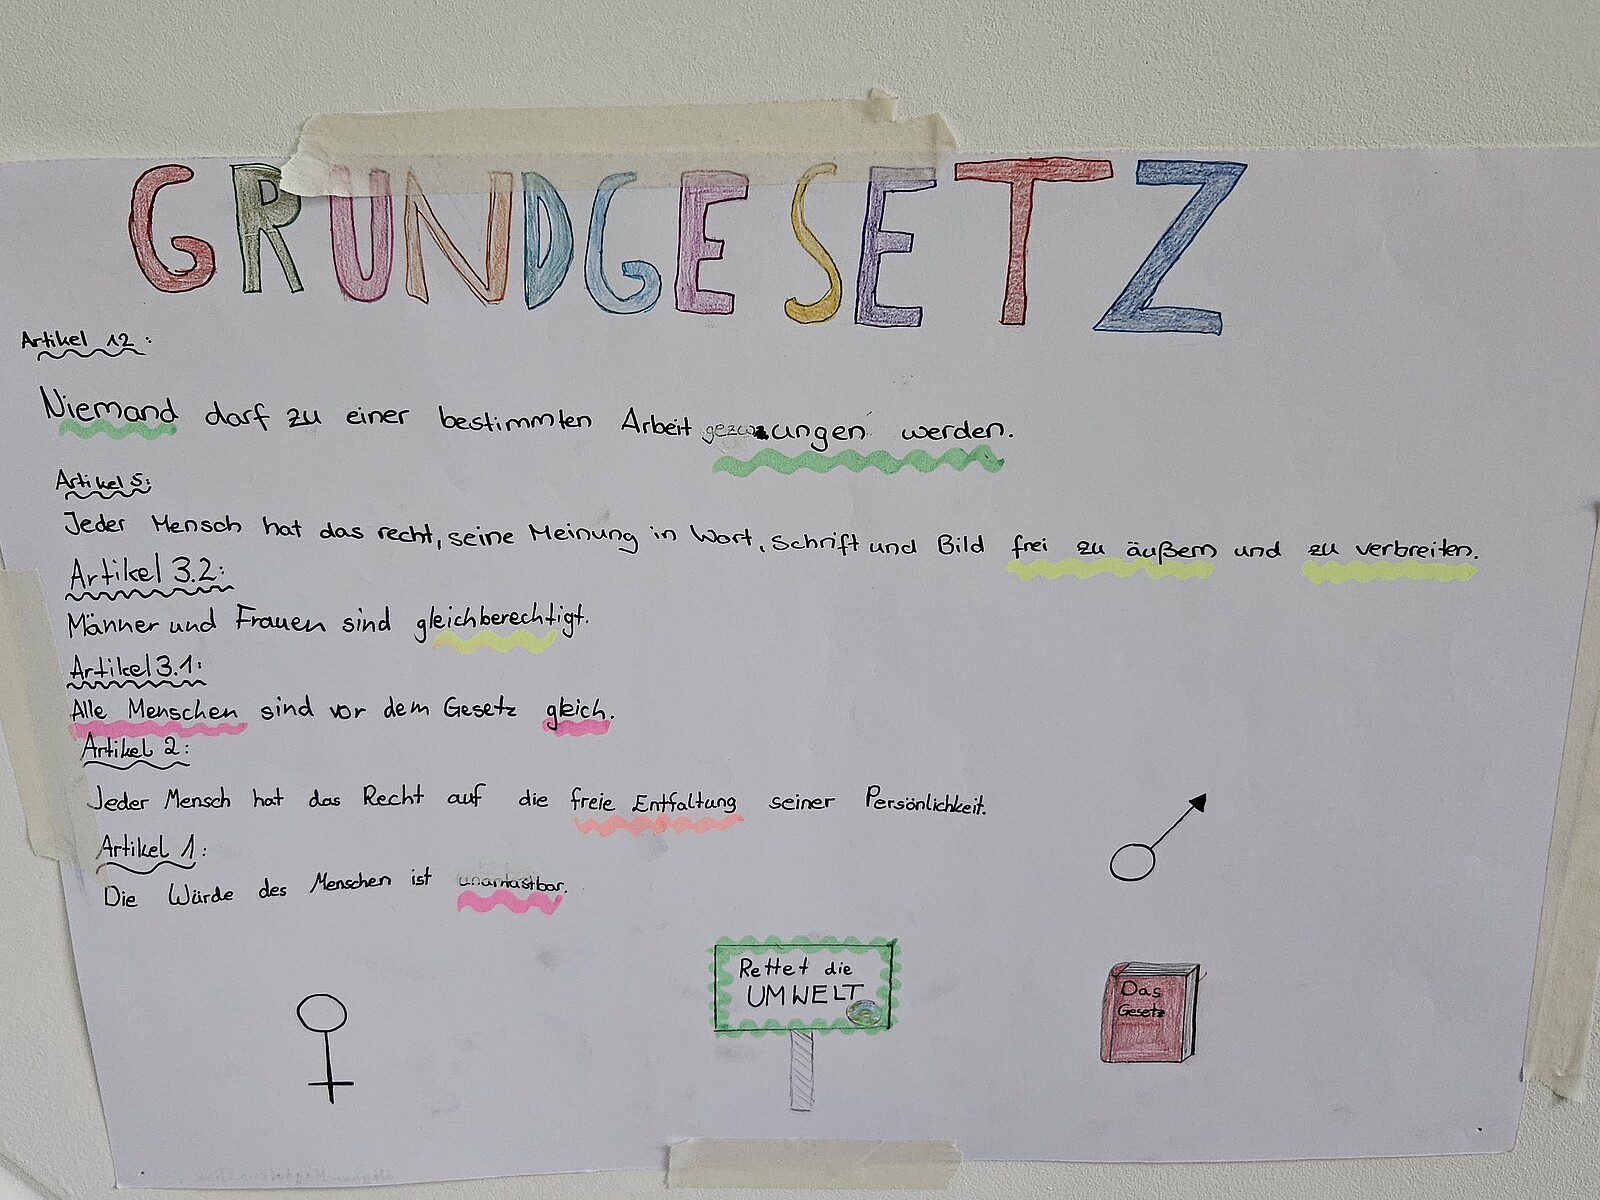 GRUNDGESETZ
Artikel 12:
Niemand darf zu einer bestimmten Arbeit gezwungen werden.
Artikel 5:
Jeder Mensch hat das recht, seine Meinung in Wort, Schrift und Bild frei zu äußern und zu verbreiten.
Artikel 3.2:
Männer und Frauen sind gleichberechtigt.
Artikel 3.1:
Alle Menschen sind vor dem Gesetz gleich.
Artikel 2:
Jeder Mensch hat das Recht auf die freie Entfaltung seiner Persönlichkeit.
Artikel 1:
Die Würde des Menschen ist unantastbar.
Rettet die
UMWELT
Das
Gesetz